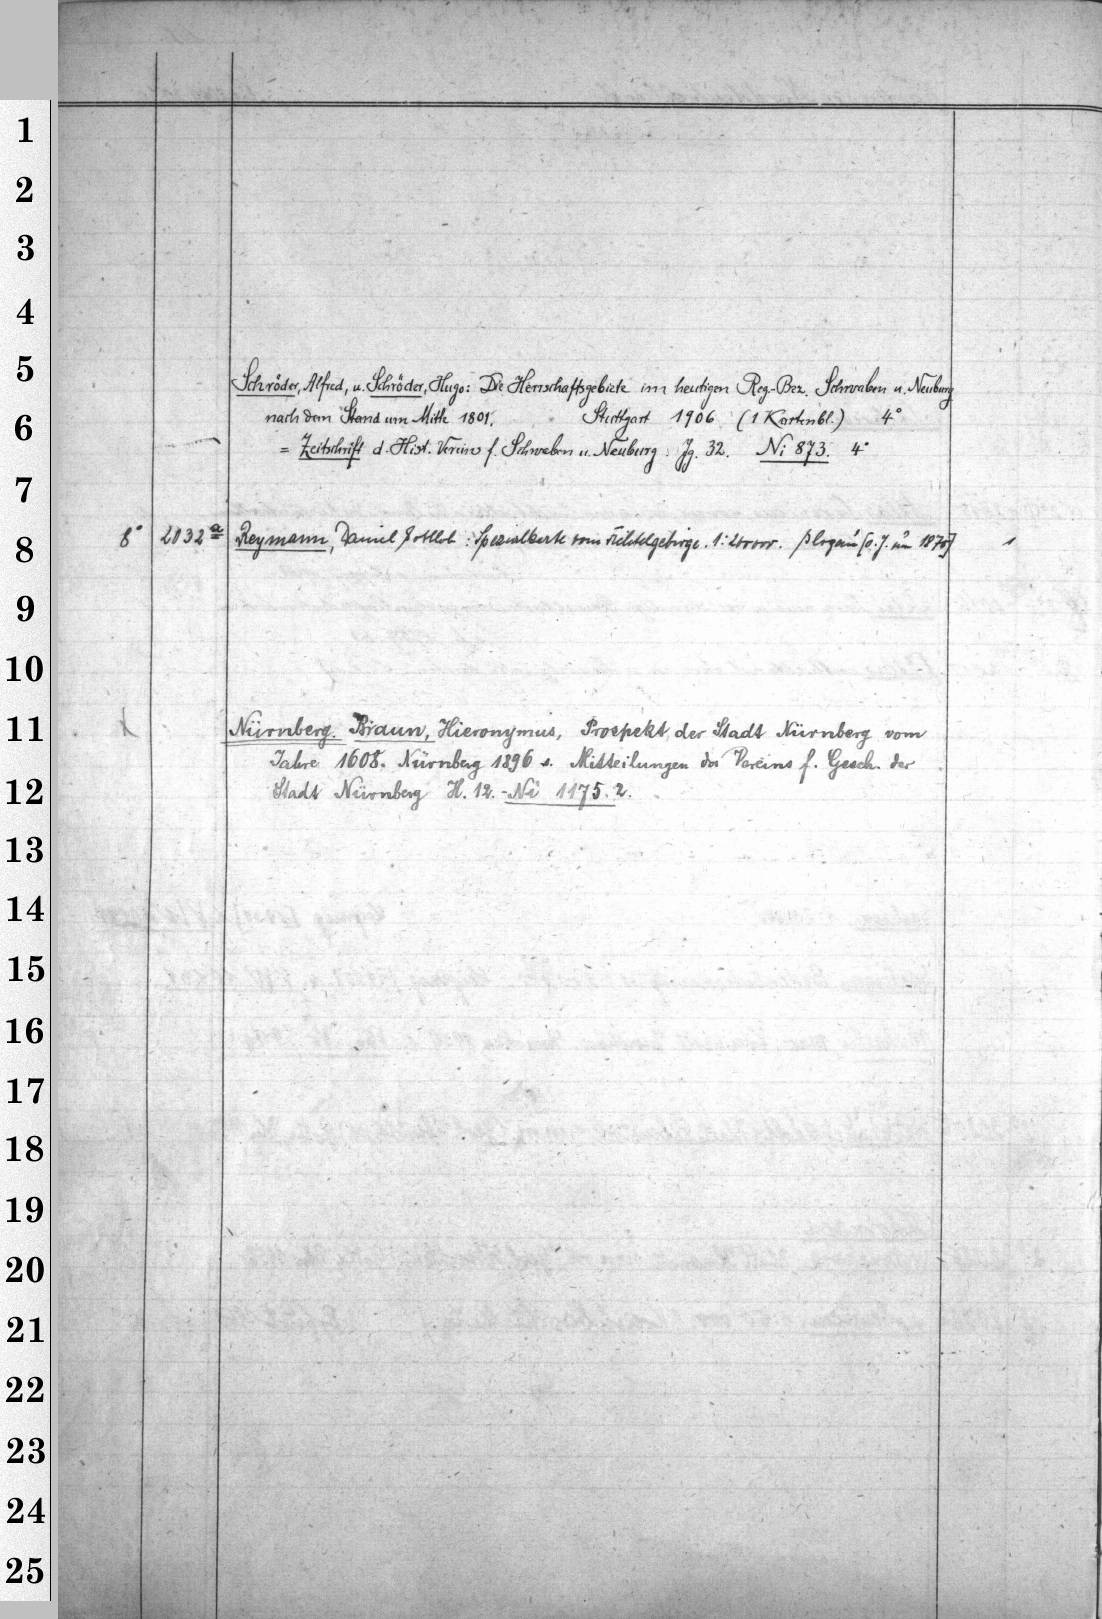 1
2
3
4
5
Schröder, Alfred, u. Schröder, Hugo: Die Herrschaftsgebiete im heutigen Reg.-Bez. Schwaben u. Neuburg
6
nach dem Stand um Mitte 1801. Stuttgart 1906 (1 Kartenbl.) 4°
= Zeitschrift d. Hist. Vereins f. Schwaben u. Neuburg. Jg. 32. Ni 873. 4°
7
8
8° 2032a Reymann, Daniel Gottlob: Spezialkarte vom Fichtelgebirge. 1:200000. Glogau [o. J. um 1870] 1
9
10
11
Nürnberg. Braun, Hieronymus, Prospekt der Stadt Nürnberg vom
Jahre 1608. Nürnberg 1896 s. Mitteilungen des Vereins f. Gesch. der
12
Stadt Nürnberg H. 12. - Ni 1175.2.
13
14
15
16
17
18
19
20
21
22
23
24
25